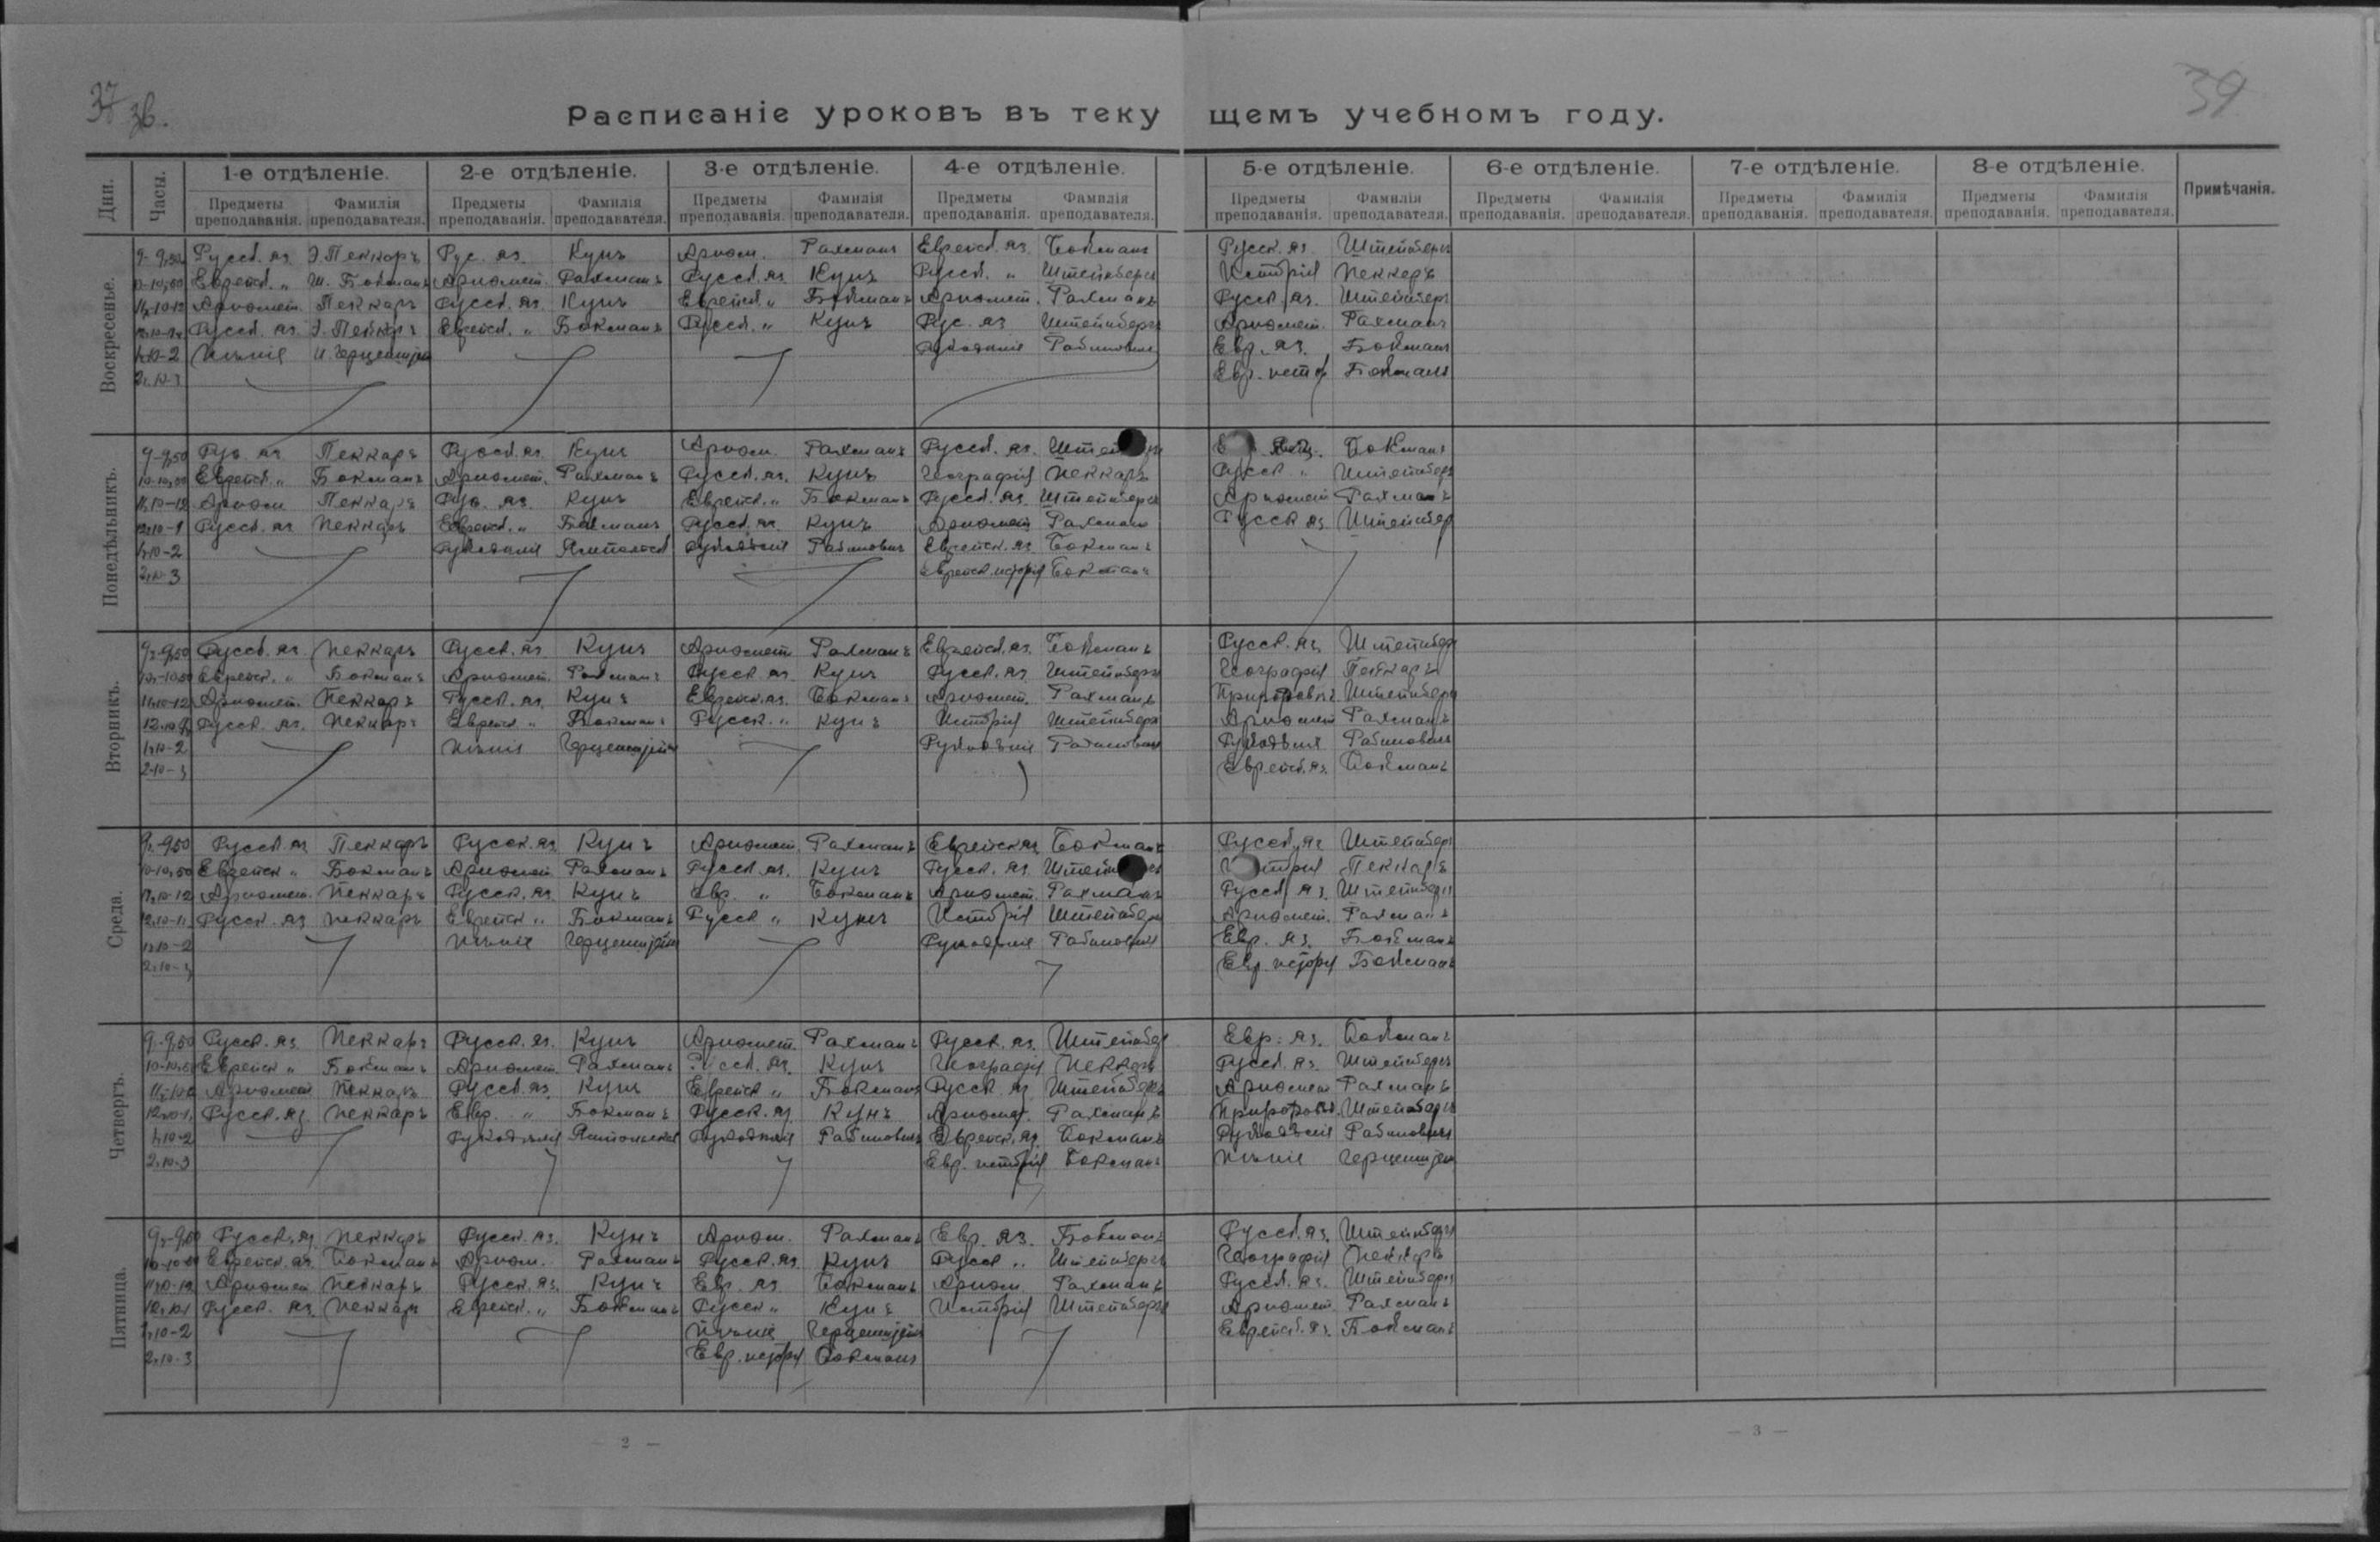 37 зв.
39
Расписаніе уроковъ въ теку щемъ учебномъ году.
Дни. Часы. 1-е отдѣленіе. 2-е отдѣленіе. 3-е отдѣленіе. 4-е отдѣленіе. 5-е отдѣленіе. 6-е отдѣленіе. 7-е отдѣленіе. 8-е отдѣленіе. Примѣчанія.
Предметы преподаванія. Фамилія преподавателя. Предметы преподаванія. Фамилія преподавателя. Предметы преподаванія. Фамилія преподавателя. Предметы преподаванія. Фамилія преподавателя. Предметы преподаванія. Фамилія преподавателя. Предметы преподаванія. Фамилія преподавателя. Предметы преподаванія. Фамилія преподавателя. Предметы преподаванія. Фамилія преподавателя.
Воскресенье.
9-9,50 Русск. яз. Э. Пеккаръ Рус. яз. Кунъ Ариѳм. Рахманъ Еврейск. яз. Бокманъ Русск. яз. Штейнбергъ
10-10,50 Еврейск. " Ш. Бокманъ Ариѳмет. Рахманъ Русск. яз. Кунъ Русск. " Штейнбергъ Исторія Пеккеръ
11,10-12 Ариѳмет. Пеккаръ Русск. яз. Кунъ Еврейск. " Бокманъ Ариѳмет. Рахманъ Русск. яз. Штейнберг
Русск. яз. Э. Пеккаръ Еврейск. " Бокманъ Русск. " Кунъ Рус. яз. Штейнбергъ Ариѳмет. Рахманъ
1,10-2 Пѣніе Рукодѣліе Рабиновичъ Евр. яз. Бокманъ
2,10-3 Евр. истор Бокманъ
Понедѣльникъ.
9-9,50 Рус. яз. Пеккаръ Русск. яз. Кунъ Ариѳм. Рахманъ Русск. яз. Бокманъ
10-10,50 Еврейск. " Бокманъ Ариѳмет. Рахманъ Русск. яз. Кунъ Географія Пеккаръ Русск. " Штейнберг
11,10-12 Ариѳм Пеккаръ Рус. яз. Кунъ Еврейск. " Бокманъ Русск. яз. Штейнбергъ Ариѳмет Рахманъ
12,10-1 Русск. яз Пеккаръ Еврейск. " Бокманъ Русск. яз. Кунъ Ариѳмет Рахманъ Русск яз Штейнбер
1,10-2 Рукодѣліе Рукодѣліе Рабиновичъ Еврейск. яз. Бокманъ
2,10-3 Еврейск. исторія Бокманъ
Вторникъ.
9-9,50 Русск. яз. Пеккаръ Русск. яз. Кунъ Ариѳмет Рахманъ Еврейск. яз. Бокманъ Русск. яз. Штейнберг
10-10,50 Еврейск. " Бокманъ Ариѳмет. Рахманъ Русск яз. Кунъ Русск. яз Штейнбергъ Географія Пеккаръ
11,10-12 Ариѳмет. Пеккаръ Русск. яз. Кунъ Еврейск. яз. Бокманъ Ариѳмет. Рахманъ Штейнбергъ
Русск. яз. Пеккаръ Еврейск " Бокманъ Русск. " Кунъ Исторія Штейнбергъ Ариѳмет Рахманъ
1,10-2 Пѣніе Рукодѣліе Рабиновичъ Рукодѣліе Рабиновичъ
2,10-3 Еврейск. яз. Бокманъ
Среда.
9-9,50 Русск. яз. Пеккаръ Русск. яз Кунъ Ариѳмет. Рахманъ Еврейск яз Бокманъ Русск. яз Штейнберг
10-10,50 Еврейск " Бокманъ Ариѳмет Рахманъ Русск. яз. Кунъ Русск. яз. Пеккаръ
11,10-12 Ариѳмет. Пеккаръ Русск. яз. Кунъ Евр. " Бокманъ Ариѳмет. Рахманъ Русск яз. Штейнбергъ
Русск. яз Пеккаръ Еврейск " Бокманъ Русск " Кунъ Исторія Штейнберг Ариѳмет. Рахманъ
1,10-2 Пѣніе Рукодѣліе Рабиновичъ Евр. яз. Бокманъ
2,10-3 Евр. исторія Бокманъ
Четвергъ.
9-9,50 Русск. яз. Пеккаръ Русск. яз. Кунъ Ариѳмет. Рахманъ Русск. яз. Штейнбер Евр. яз. Бокманъ
10-10,50 Еврейск " Бокманъ Ариѳмет. Рахманъ Русск. яз. Кунъ Географія Пеккаръ Русск. яз. Штейнбергъ
Ариѳмет Пеккаръ Русск. яз. Кунъ Еврейск " Бокманъ Русск яз Штейнберг Ариѳмет Рахманъ
12,10-1 Русск. яз. Пеккаръ Евр. " Бокманъ Русск. яз Кунъ Ариѳмет. Рахманъ Штейнбергъ
1,10-2 Рукодѣліе Рукодѣліе Рабиновичъ Еврейск. яз. Бокманъ Рукодѣліе Рабиновичъ
2,10-3 Евр. исторія Бокманъ Пѣніе
Пятница.
9-9,50 Русск. яз. Пеккаръ Русск. яз. Кунъ Ариѳм. Рахманъ Евр. яз. Бокманъ Русск. яз. Штейнбергъ
10-10,50 Еврейск. яз. Бокманъ Ариѳм. Рахманъ Русск. яз. Кунъ Русск " Штейнбергъ Географія Пеккаръ
11,10-12 Ариѳмет Пеккаръ Русск. яз. Кунъ Евр. яз Бокманъ Ариѳм Рахманъ Русск. яз. Штейнбергъ
12,10-1 Русск. яз. Пеккаръ Еврейск. " Бокманъ Русск " Кунъ Исторія Штейнбергъ Ариѳмет Рахманъ
1,10-2 Пѣніе Еврейск. яз. Бокманъ
2,10-3 Евр. исторія Бокманъ
2 —
— 3 —